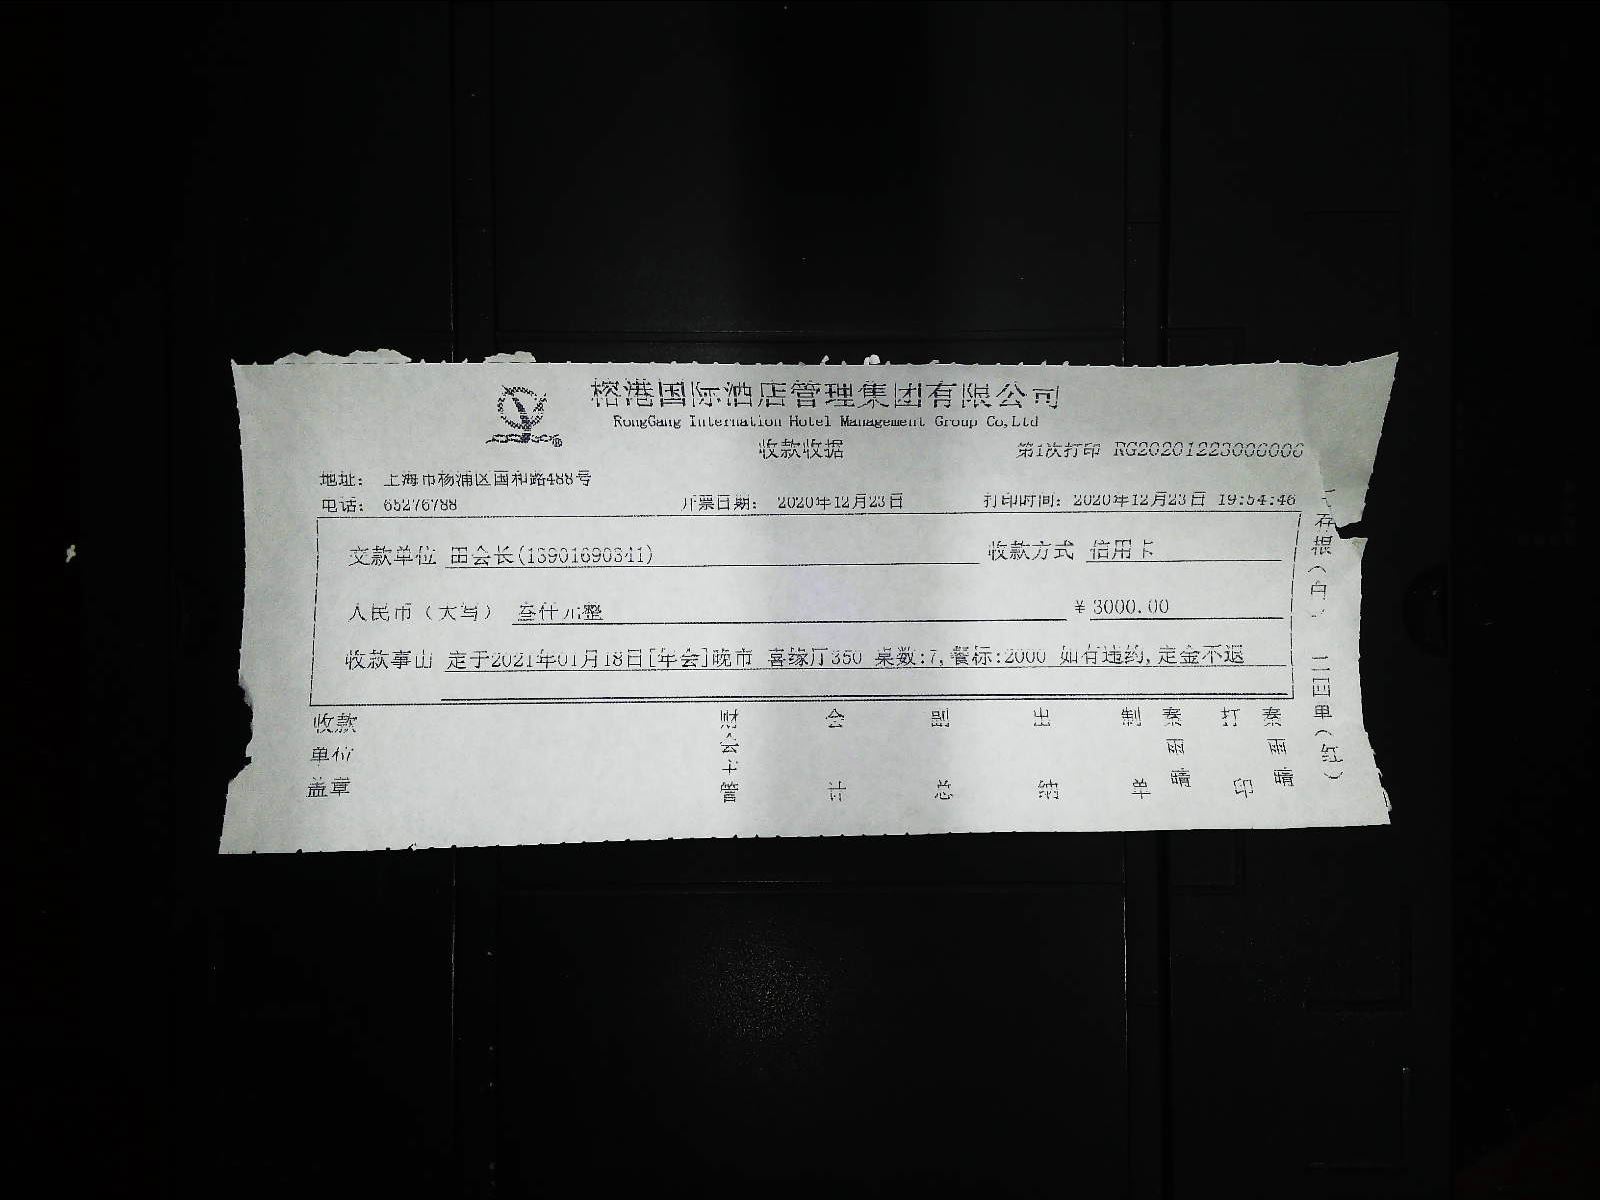 榕港国际酒店管理集团有限公司
RongGang Internation Hotel Management Group Co,Ltd
收款收据
第1次打印 RG20201223006000
地址: 上海市杨浦区国和路488号
电话: 65276788 开票日期: 2020年12月23日 打印时间: 2020年12月23日 19:54:46
交款单位 田会长(13901690341) 收款方式 信用卡
人民币(大写) 叁仟元整 ¥3000.00
收款事由 定于2021年01月18日[年会]晚市 喜缘厅350 桌数:7,餐标:2000 如有违约,定金不退
收款单位盖章 会计 副总 出纳 制单 秦雨晴 打印 秦雨晴
存根(白) 二回单(红)